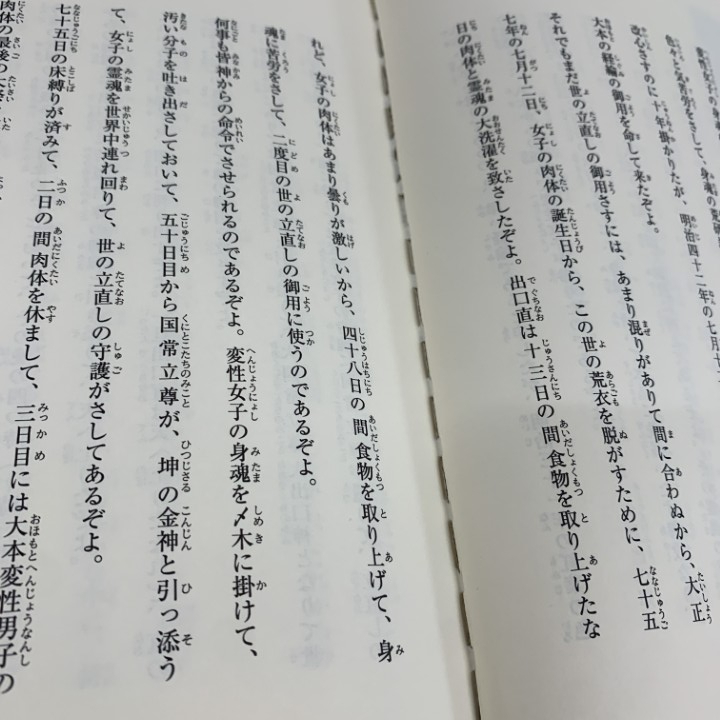 気苦労をさして、身魂の
改心さすのに十年掛かりたが、明治四十二年の七月十
大本の経綸の御用を命して来たぞよ。
それでもまだ世の立直しの御用さすには、あまり混りがありて間に合わぬから、大正
七年の七月十二日、女子の肉体の誕生日から、この世の荒衣を脱がすために、七十五
日の肉体と霊魂の大洗濯を致さしたぞよ。出口直は十三日の間食物を取り上げたな
れど、女子の肉体はあまり曇りが激しいから、四十八日の間食物を取り上げて、身
魂に苦労をさして、二度目の世の立直しの御用に使うのであるぞよ。
何事も皆神からの命令でさせられるのであるぞよ。変性女子の身魂を〆木に掛けて、
汚い分子を吐き出さしておいて、五十日目から国常立尊が、坤の金神と引っ添う
て、女子の霊魂を世界中連れ回りて、世の立直しの守護がさしてあるぞよ。
七十五日の床縛りが済みて、二日の間肉体を休まして、三日目には大本変性男子の
肉体の最後の大祭